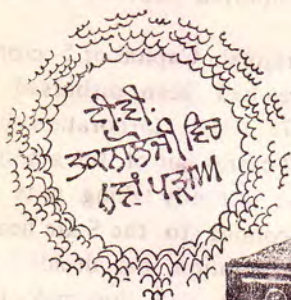 ਟੀ.ਵੀ.
ਤਕਨਾਲੋਜੀ ਵਿਚ
ਨਵਾਂ ਪੜਾਅ